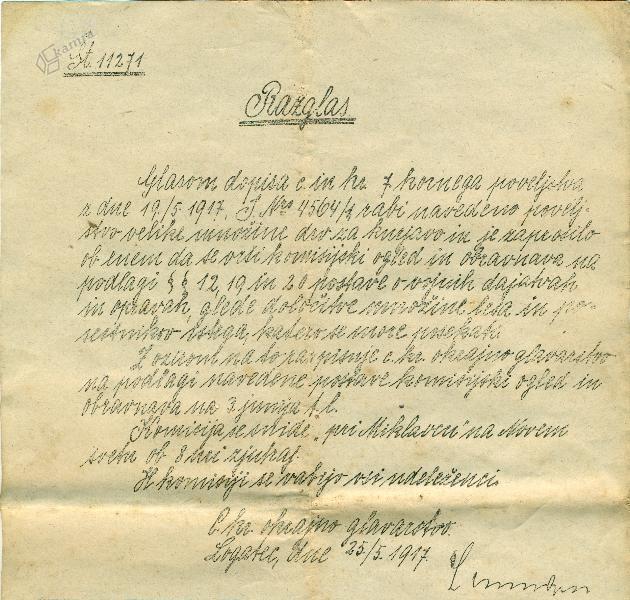 kamra
Št. 11271
Razglas
Glasom dopisa c. in kr. 7 kornega poveljstva
z dne 19./5. 1917. J. Nro 4564/2 rabi navedeno povelj-
stvo velike množine drv za kurjavo in je zaprosilo
ob enem da se vrši komisijski ogled in obravnava na
podlagi §§ 12, 19 in 20 postave o vojnih dajatvah
in opravah, glede določitve množine lesa in po-
sestnikov istega, katero se more posekati.
Z ozirom na to razpisuje c. kr. okrajno glavarstvo
na podlagi navedene postave komisijski ogled in
obravnava na 3. junija t. l.
Komisija se snide "pri Miklavcu" na Novem
svetu ob 8 uri zjutraj.
K komisiji se vabijo vsi udeleženci.
C. kr. okrajno glavarstvo.
Logatec, dne 25/5. 1917.